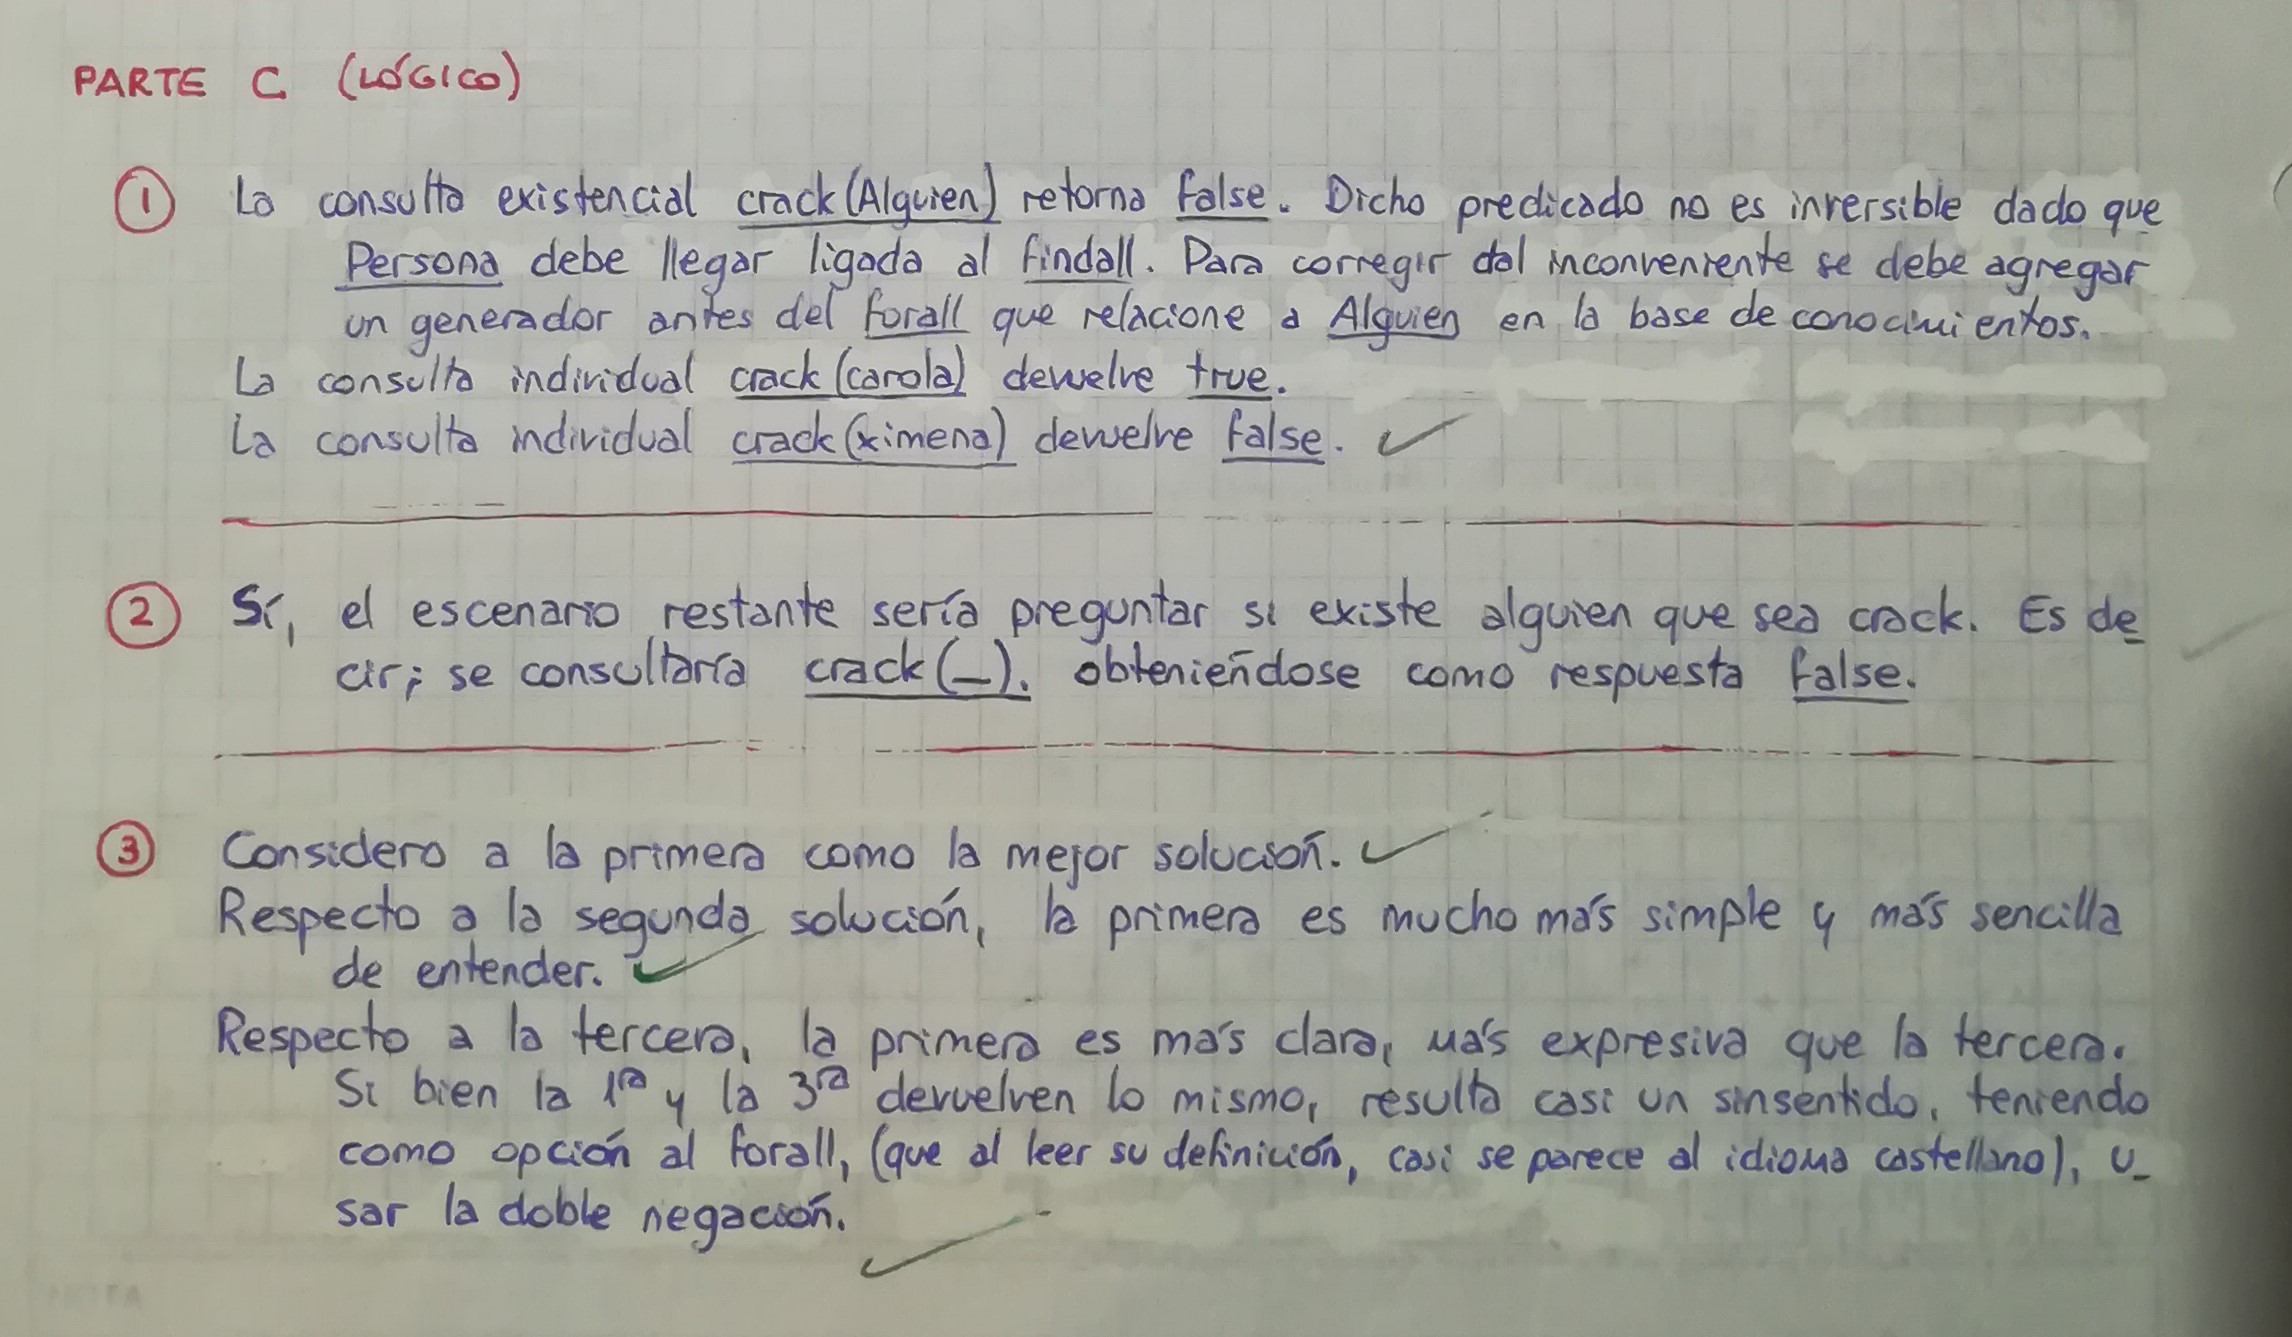 PARTE C (LÓGICO)
① La consulta existencial crack(Alguien) retorna false. Dicho predicado no es inversible dado que
Persona debe llegar ligada al findall. Para corregir tal inconveniente se debe agregar
un generador antes del forall que relacione a Alguien en la base de conocimientos.
La consulta individual crack(carola) devuelve true.
La consulta individual crack(ximena) devuelve false.
② Sí, el escenario restante sería preguntar si existe alguien que sea crack. Es de
cir; se consultaría crack(_). obteniéndose como respuesta false.
③ Considero a la primera como la mejor solución.
Respecto a la segunda solución, la primera es mucho más simple y más sencilla
de entender.
Respecto a la tercera, la primera es más clara, más expresiva que la tercera.
Si bien la 1ra y la 3ra devuelven lo mismo, resulta casi un sinsentido, teniendo
como opción al forall, (que al leer su definición, casi se parece al idioma castellano), u_
sar la doble negación.